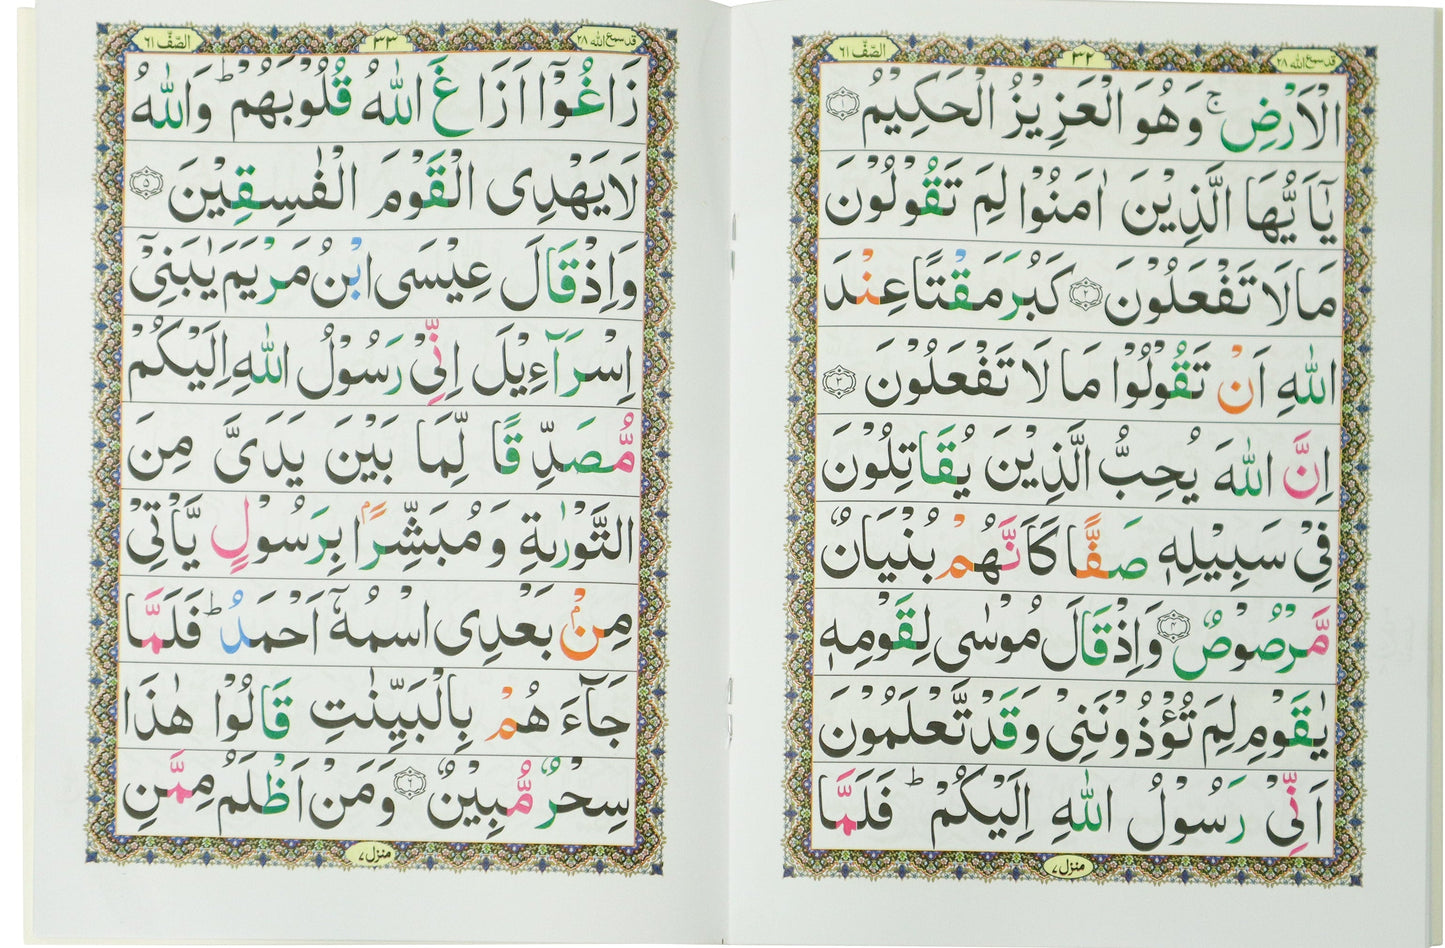 قد سمع الله ٢٨
٣٢
الصّفّ ٦١
الْاَرْضِ ۚ وَهُوَ الْعَزِيْزُ الْحَكِيْمُ ۝١
يٰٓاَيُّهَا الَّذِيْنَ اٰمَنُوْا لِمَ تَقُوْلُوْنَ
مَا لَا تَفْعَلُوْنَ ۝٢ كَبُرَ مَقْتًا عِنْدَ
اللّٰهِ اَنْ تَقُوْلُوْا مَا لَا تَفْعَلُوْنَ ۝٣
اِنَّ اللّٰهَ يُحِبُّ الَّذِيْنَ يُقَاتِلُوْنَ
فِيْ سَبِيْلِهٖ صَفًّا كَاَنَّهُمْ بُنْيَانٌ
مَّرْصُوْصٌ ۝٤ وَاِذْ قَالَ مُوْسٰى لِقَوْمِهٖ
يٰقَوْمِ لِمَ تُؤْذُوْنَنِيْ وَقَدْ تَّعْلَمُوْنَ
اَنِّيْ رَسُوْلُ اللّٰهِ اِلَيْكُمْ ؕ فَلَمَّا
منزل ٧
قد سمع الله ٢٨
٣٣
الصّفّ ٦١
زَاغُوْٓا اَزَاغَ اللّٰهُ قُلُوْبَهُمْ ؕ وَاللّٰهُ
لَا يَهْدِى الْقَوْمَ الْفٰسِقِيْنَ ۝٥
وَاِذْ قَالَ عِيْسَى ابْنُ مَرْيَمَ يٰبَنِيْٓ
اِسْرَآءِيْلَ اِنِّيْ رَسُوْلُ اللّٰهِ اِلَيْكُمْ
مُّصَدِّقًا لِّمَا بَيْنَ يَدَيَّ مِنَ
التَّوْرٰىةِ وَمُبَشِّرًۢا بِرَسُوْلٍ يَّاْتِيْ
مِنْۢ بَعْدِى اسْمُهٗٓ اَحْمَدُ ؕ فَلَمَّا
جَآءَهُمْ بِالْبَيِّنٰتِ قَالُوْا هٰذَا
سِحْرٌ مُّبِيْنٌ ۝٦ وَمَنْ اَظْلَمُ مِمَّنِ
منزل ٧